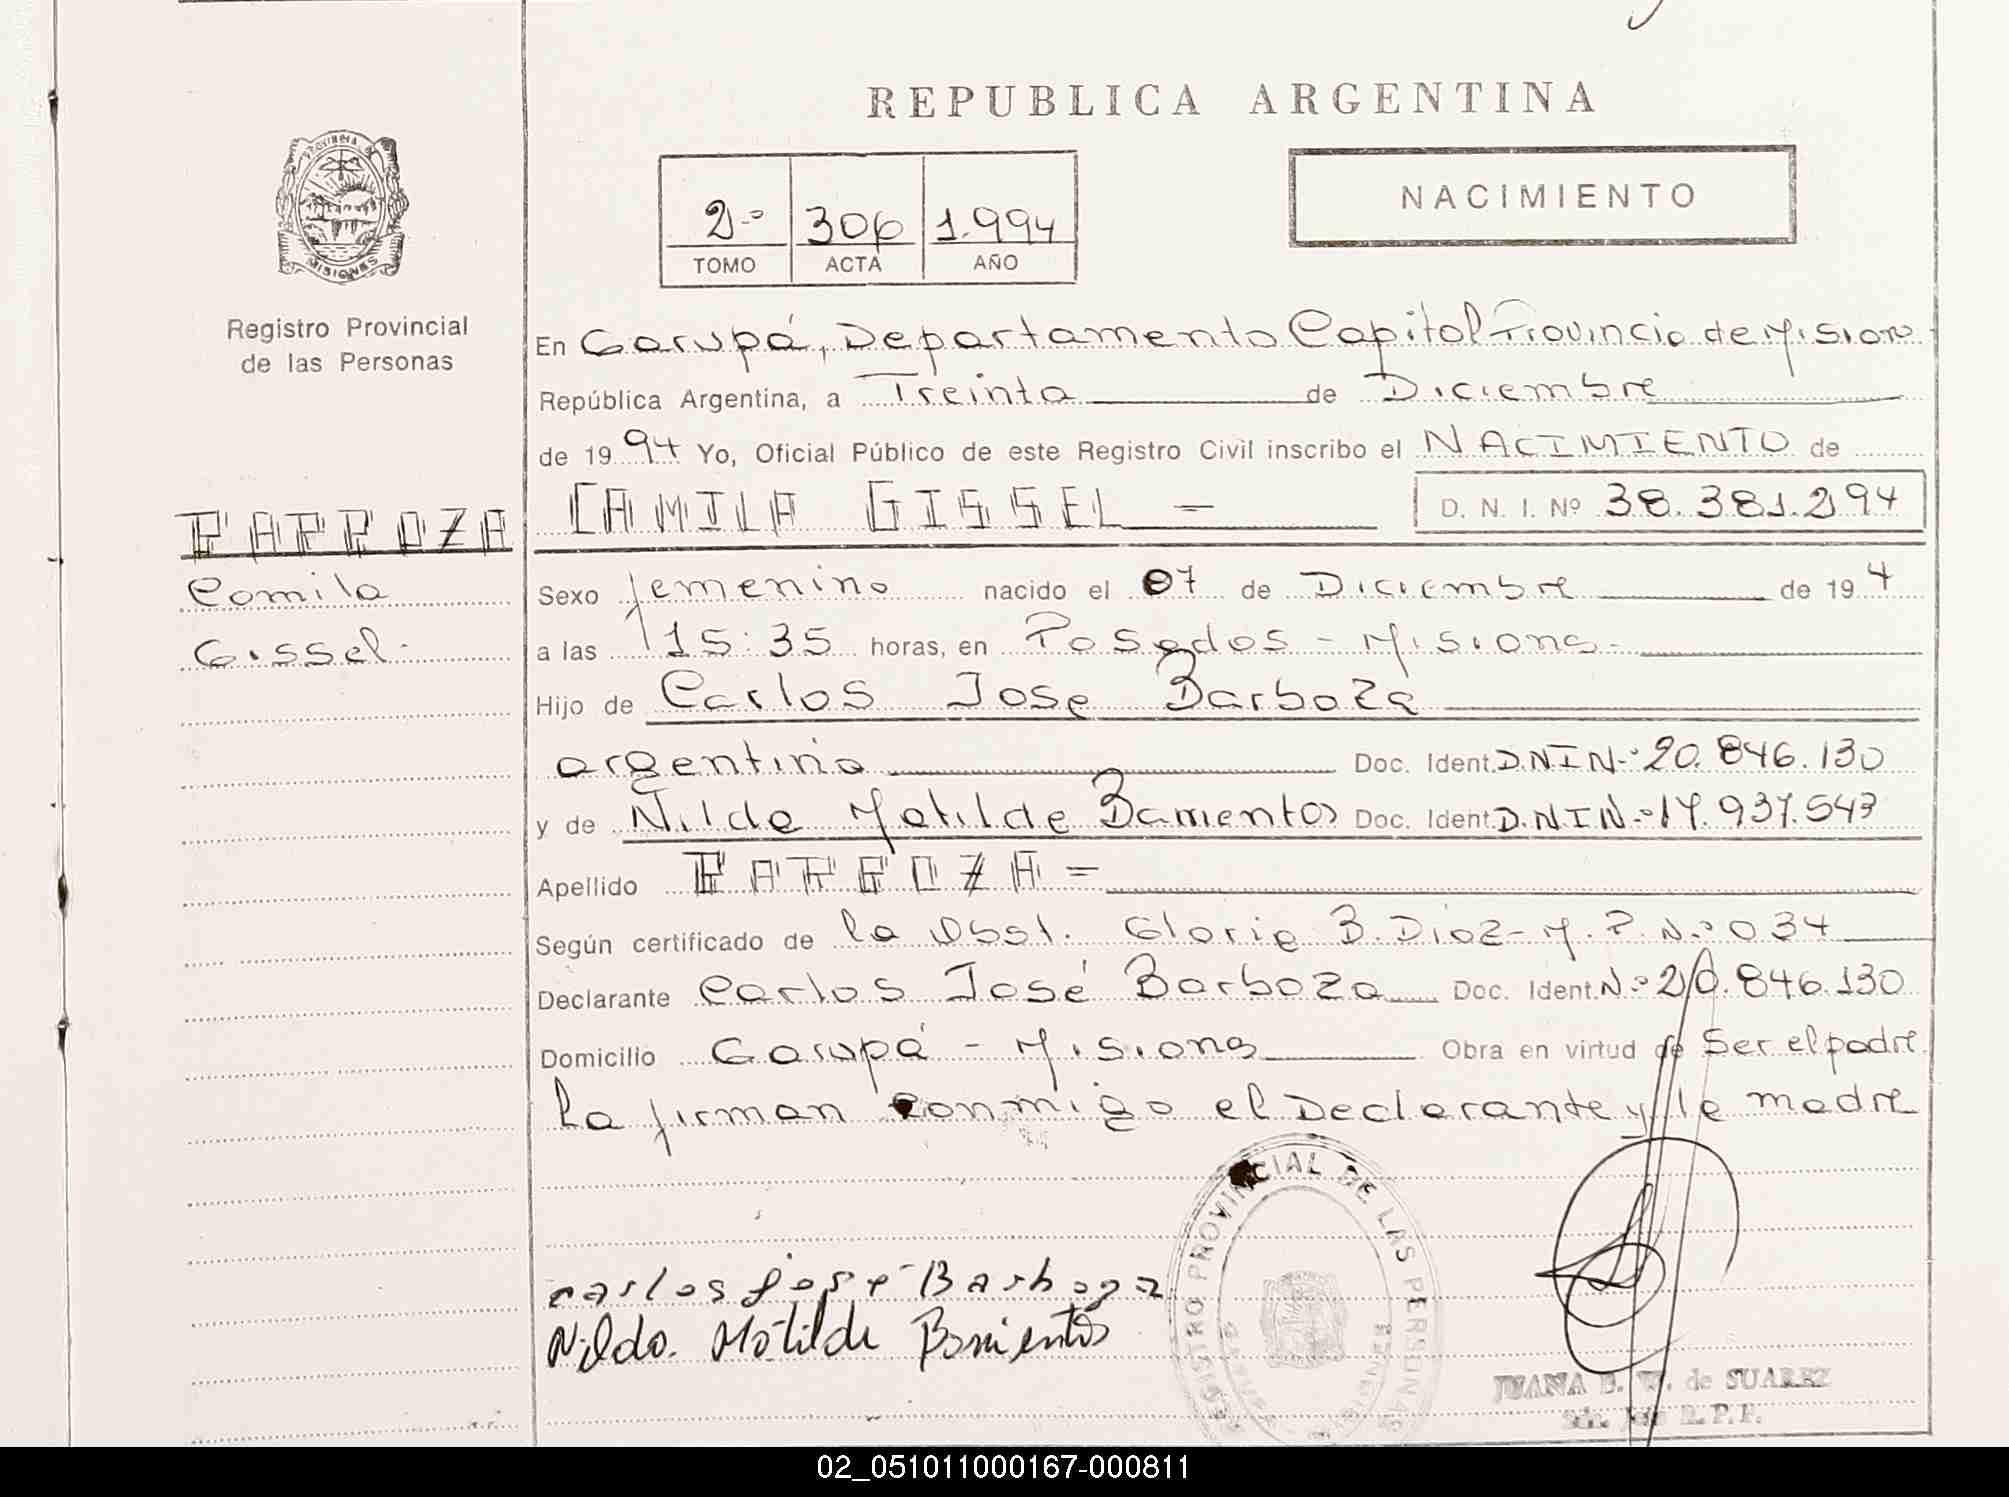 REPUBLICA ARGENTINA
PROVINCIA DE
MISIONES
Registro Provincial
de las Personas
2º 306 1.994
TOMO ACTA AÑO
NACIMIENTO
En Garupá, Departamento Capital Provincia de Misiones
República Argentina, a Treinta de Diciembre
de 1994 Yo, Oficial Público de este Registro Civil inscribo el NACIMIENTO de
BARBOZA
CAMILA GISSEL = D. N. I. Nº 38.381.294
Camila
Gissel.
Sexo femenino nacido el 07 de Diciembre de 194
a las 15:35 horas, en Posadas - Misiones -
Hijo de Carlos Jose Barboza
argentina Doc. Ident. D.N.I N.º 20.846.130
y de Nilda Matilde Barrientos Doc. Ident. D.N.I N.º 17.937.543
Apellido BARBOZA =
Según certificado de la Obst. Gloria B. Diaz - M. P. N.º 034
Declarante Carlos José Barboza Doc. Ident. N.º 20.846.130
Domicilio Garupá - Misiones Obra en virtud de Ser el padre
La firman conmigo el Declarante y la madre
REGISTRO PROVINCIAL DE LAS PERSONAS
carlos jose Barboza
Nilda. Matilde Barrientos
JUANA E. W. de SUAREZ
R. P. P.
02_051011000167-000811